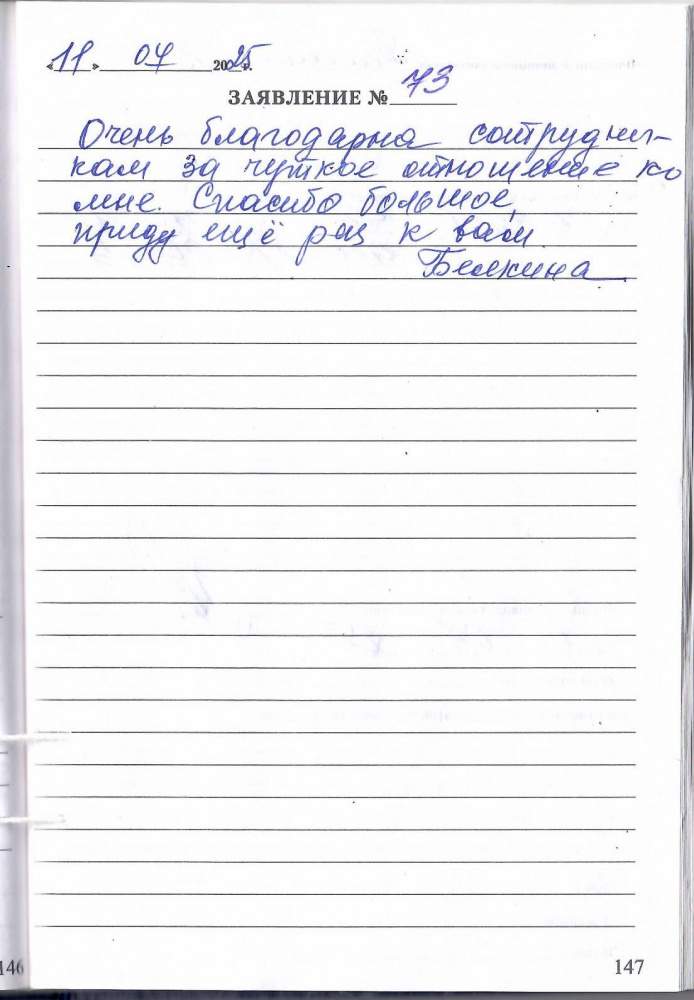 «11» 07 2025 г.
ЗАЯВЛЕНИЕ № 73
Очень благодарна сотрудни-
кам за чуткое отношение ко
мне. Спасибо большое,
приду ещё раз к вам.
Белкина
146
147